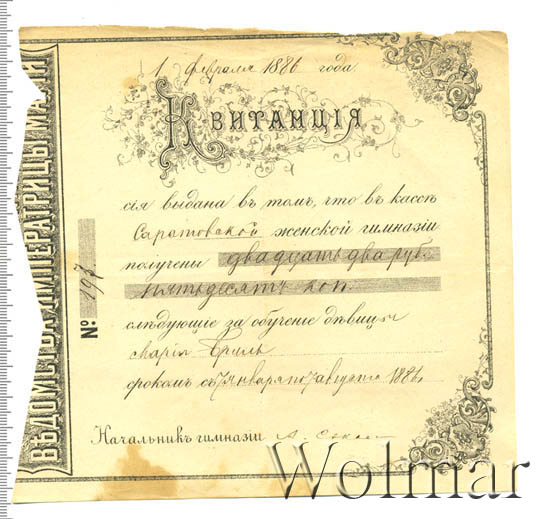 1 февраля 1886 года
Квитанція
сія выдана въ томъ, что въ кассѣ
Саратовской женской гимназіи
получены двадцать два руб.
пятьдесятъ коп.
слѣдующіе за обученіе дѣвицы
Маріи
срокомъ съ 7 января по 7 августа 1886
Начальникъ гимназіи А.
№ 197.
ВѢДОМСТВА ИМПЕРАТРИЦЫ МАРІИ
Wolmar